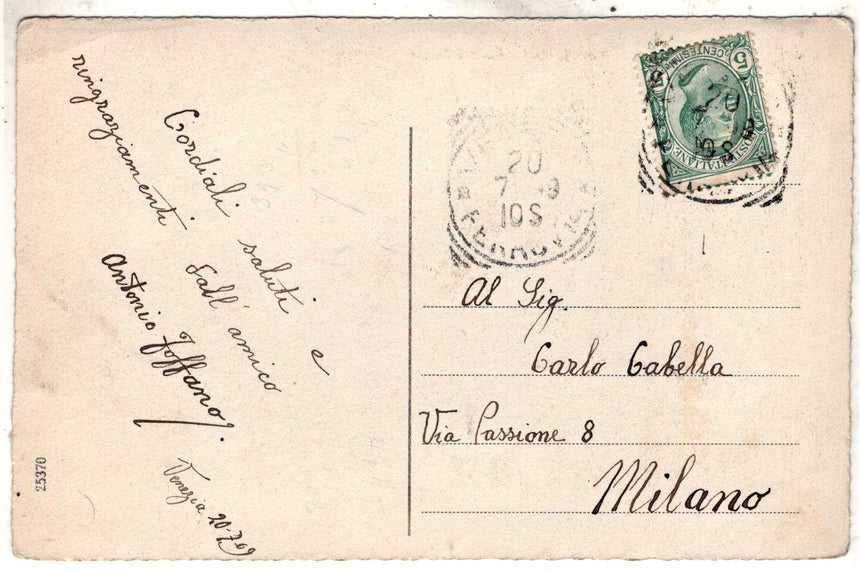 Cordiali saluti e
ringraziamenti dall'amico
Antonio Toffano.
Venezia 20-7-09
25370
20
7
10 S
FERROVIA
CENTESIMI
5
POSTE ITALIANE
Al Sig.
Carlo Gabella
Via Passione 8
Milano